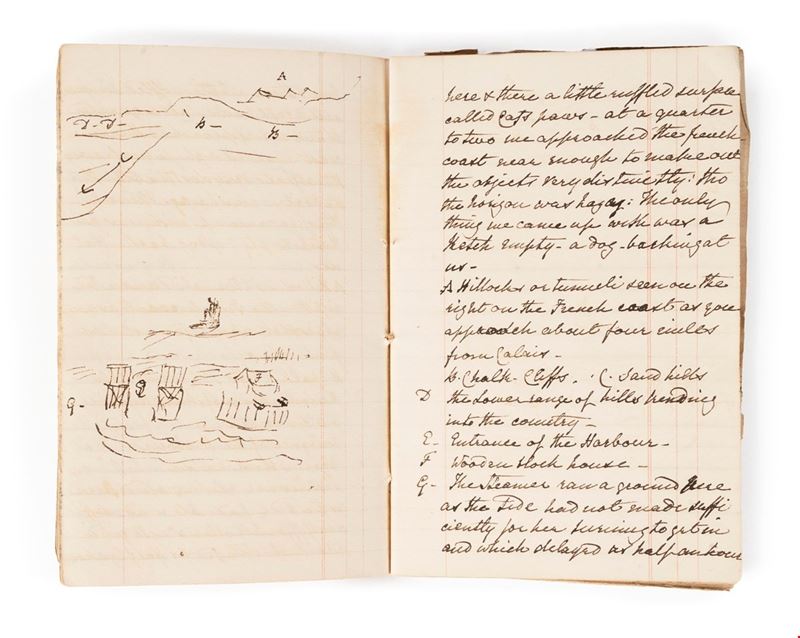 A
D - D -
B -
B -
C
G -
F
here & there a little ruffled surface
called Cats paws - at a quarter
to two we approached the french
coast near enough to make out
the objects very distinctly: tho
the horizon was hazey: The only
thing we came up with was a
Ketch empty - a dog - barking at
us -
A Hillocks or tumuli seen on the
right on the French coast as you
approach about four miles
from Calais -
B. Chalk - Cliffs. . C. Sand hills
D the Lower range of hills bending
into the country -
E - Entrance of the Harbour -
F Wooden block house -
G - The Steamer ran a ground here
as the Tide had not made suffi
ciently for her running to get in
and which delayed us half an hour